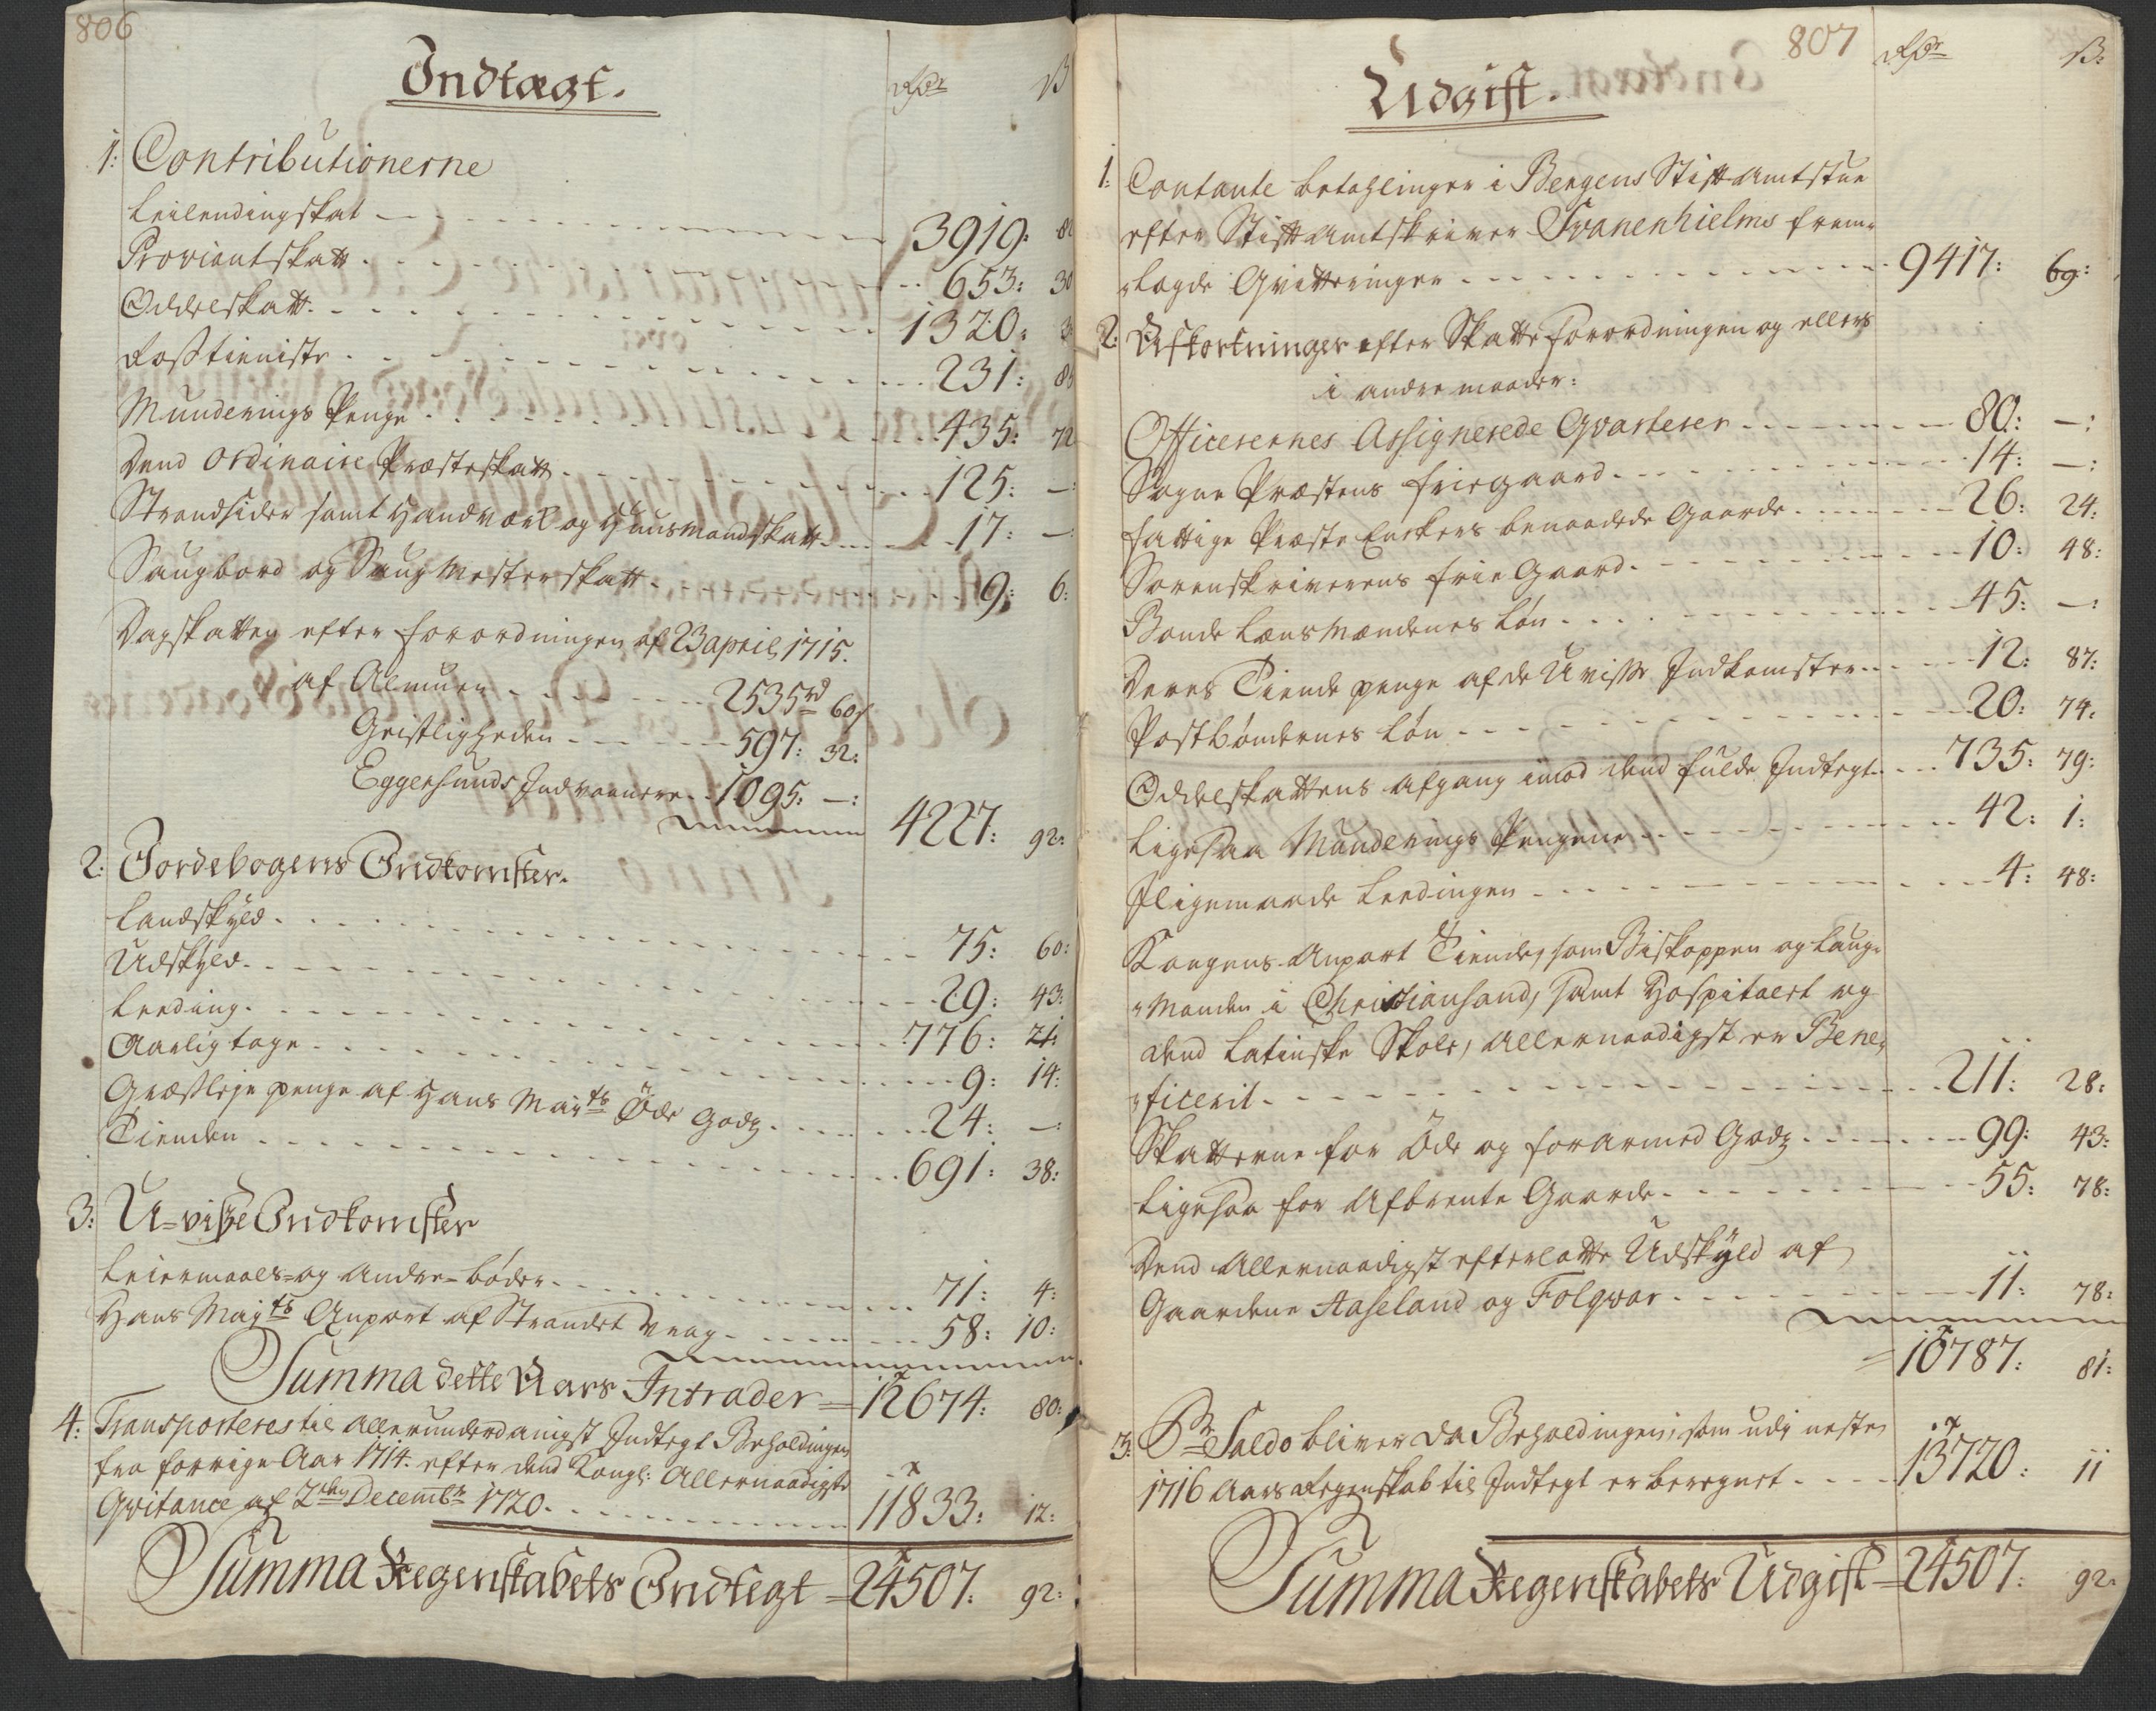 806
Indtægt.
Rdr ß
1: Contributionerne
Leilendingskat 3919: 8
Proviantskatt 653: 30
Oddelskatt 1320:
Rostieniste 231: 8
Munderings Penge 435: 72
Dend Ordinaire Præsteskatt 125: –:
Strandsider samt Handværk og Huusmandskatt 17: –:
Saugbord og Saugmesterskatt 9: 6:
Dagskatten efter forordningen af 23 april 1715.
af Almuen 2535 rd 60 s
Geistligheden 597: 32:
Eggersunds Indvaanere 1095: –:
4227: 92:
2: Jordebogens Indkomster.
Landskyld 75: 60:
Udskyld 29: 43:
Leeding 776: 21:
Aarlig tage 9: 14:
Græsleje penge af Hans Mayts Øde Godz 24: –:
Tienden 691: 38:
3: U-visse Indkomster
Leiermaals- og Andre- bøder 71: 4:
Hans Mayts Anpart af Strandet Vrag 58: 10:
Summa dette Aars Intrader = 12674: 80:
4: Transporteres til allerunderdanigst Indtegt Beholdingen
fra forrige Aar 1714. efter dend Kongl: Allernaadigste
Qvitance af 2den Decembr 1720 11833: 12:
Summa Regenskabets Indtegt = 24507: 92:
807
Udgift.
Rdr ß:
1: Contante betahlinger i Bergens Stiftamtstue
efter Stiftamtskriver Svanenhielms frem-
lagde Qvitteringer 9417: 69:
2: Afkortninger efter Skatte Forordningen og ellers
i andre maader:
Officerernes Assignerede Qvarterer 80: –:
Sogne Præstens friegaard 14: –:
Fattige Præste Enckers benaadede Gaarde 26: 24:
Sorenskriverens frie Gaard 10: 48:
Bonde Lænsmændenes Løn 45: –:
Deres Tiende penge af de Uvisse Indkomster 12: 87:
Postbøndernes Løn 20: 74:
Oddelskattens afgang imod dend fulde Indtegt 735: 79:
Ligesaa Munderings Pengene 42: 1:
Iligemaade Leedingen 4: 48:
Kongens Anpart Tiende, som Biskoppen og Laug-
Manden i Christiansand, samt Hospitalet og
dend Latinske Skole, Allernaadigst er Bene-
ficerit 211: 28:
Skatterne for Øde og forarmed Godz 99: 43:
Ligesaa for Afbrente Gaarde 55: 78:
Dend Allernaadigst efterlatte Udskyld af
Gaardene Aaseland og Folqvar 11: 78:
= 10787: 81:
3: Pr Saldo bliver da Beholdingen, som udj neste
1716 Aars Regenskab til Indtegt er beregnet 13720: 11
Summa Regenskabets Udgift = 24507: 92: